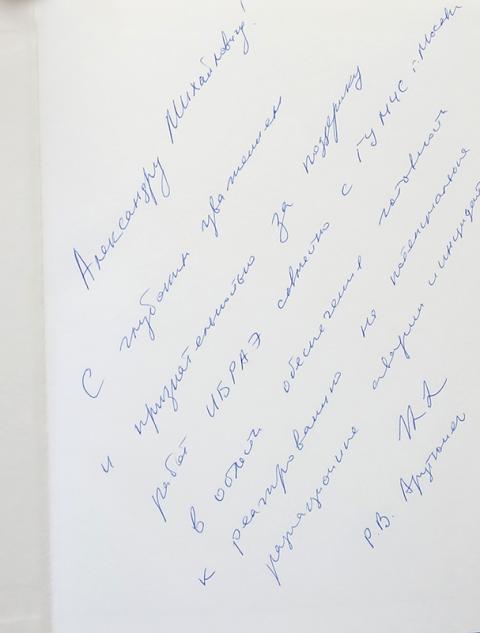 Александру Михайловичу!
С глубоким уважением
и признательностью за поддержку
работ ИБРАЭ совместно с ГУ МЧС г. Москвы
в области обеспечения готовности
к реагированию на потенциальные
радиационные аварии и инциденты
Р.В. Арутюнян